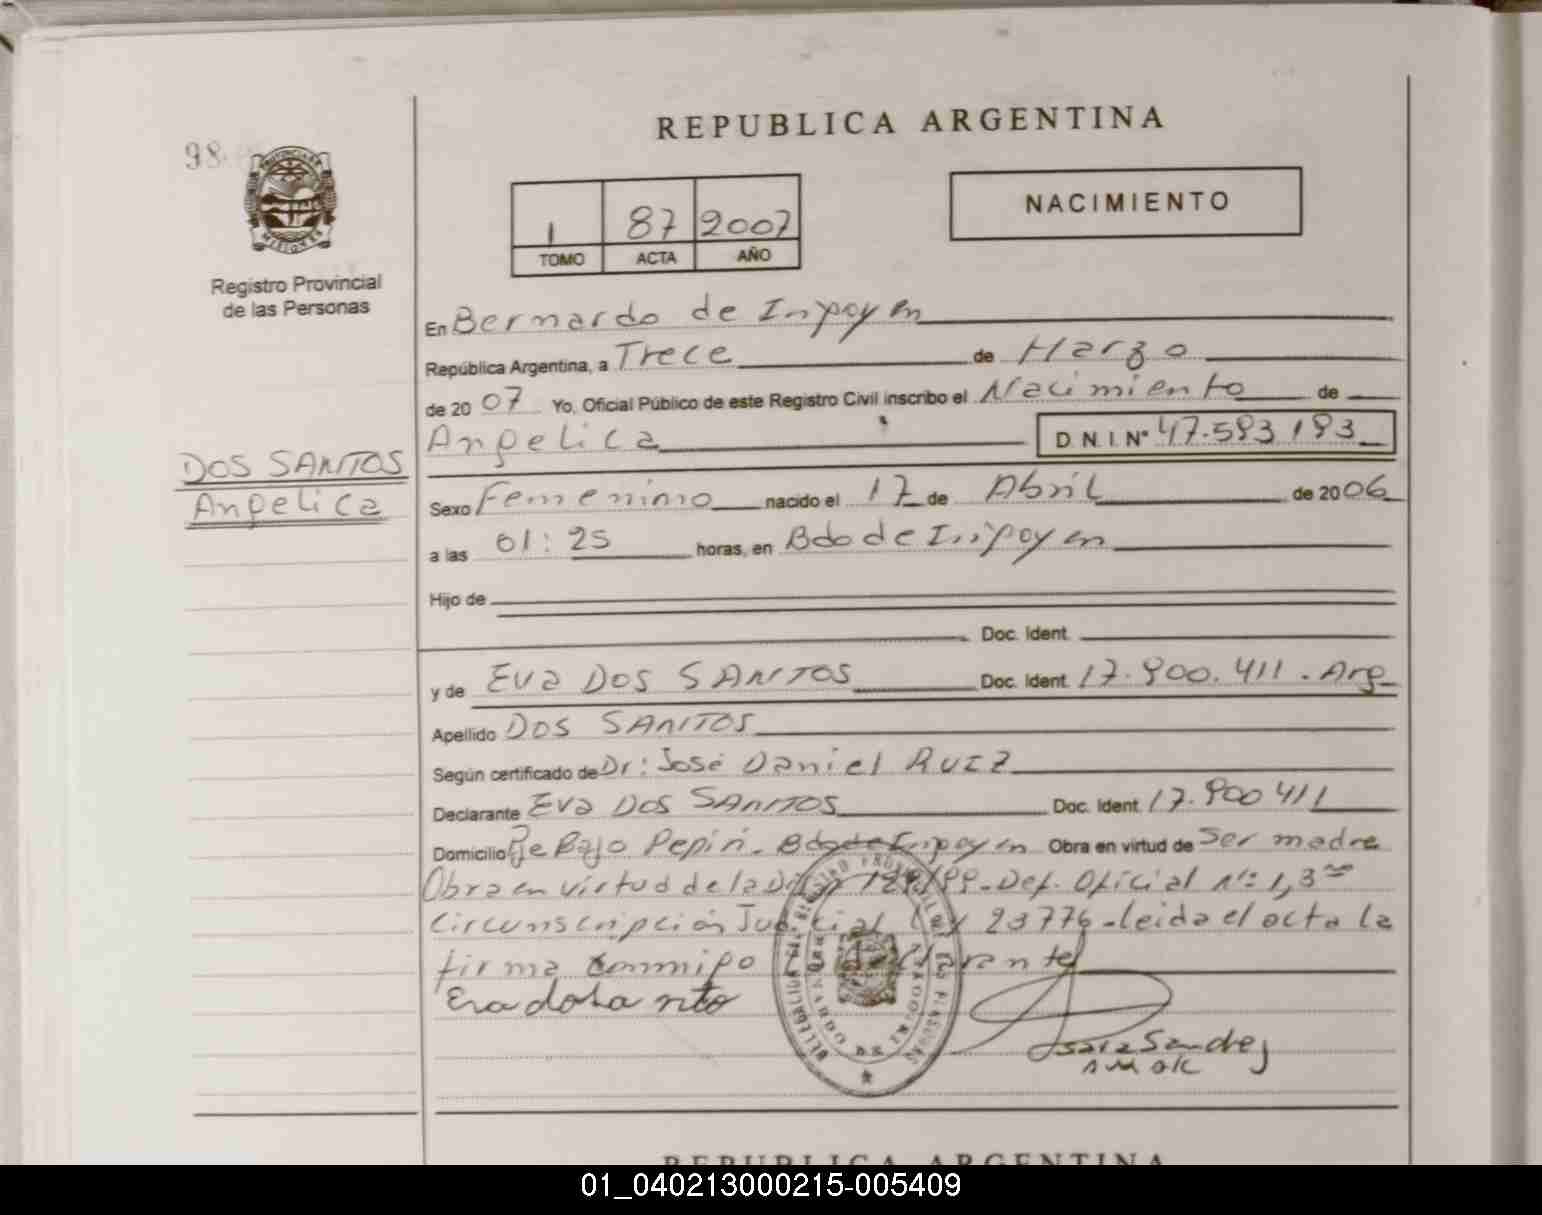 REPUBLICA ARGENTINA
98
NACIMIENTO
1 87 2007
TOMO ACTA AÑO
Registro Provincial
de las Personas
En Bernardo de Irigoyen
República Argentina, a Trece de Marzo
de 2007 Yo, Oficial Público de este Registro Civil inscribo el Nacimiento de
Angelica D.N.I. N° 47.593.193
DOS SANTOS
Angelica
Sexo Femenino nacido el 17 de Abril de 2006
a las 01:25 horas, en Bdo de Irigoyen
Hijo de
Doc. Ident.
y de Eva DOS SANTOS Doc. Ident. 17.900.411. Arg
Apellido DOS SANTOS
Según certificado de Dr: José Daniel RUIZ
Declarante Eva DOS SANTOS Doc. Ident. 17.900 411
Domicilio Bajo Pepiri. Bdo de Irigoyen Obra en virtud de Ser madre
Obra en virtud de la 129/99. Def. Oficial N°: 1, 3ra
Circunscripción Judicial Ley 23776. leida el acta la
firma conmigo
Eva do Santo
DELEGACION DEL REGISTRO PROVINCIAL DE LAS PERSONAS
Sara Sandre
REPUBLICA ARGENTINA
01_040213000215-005409